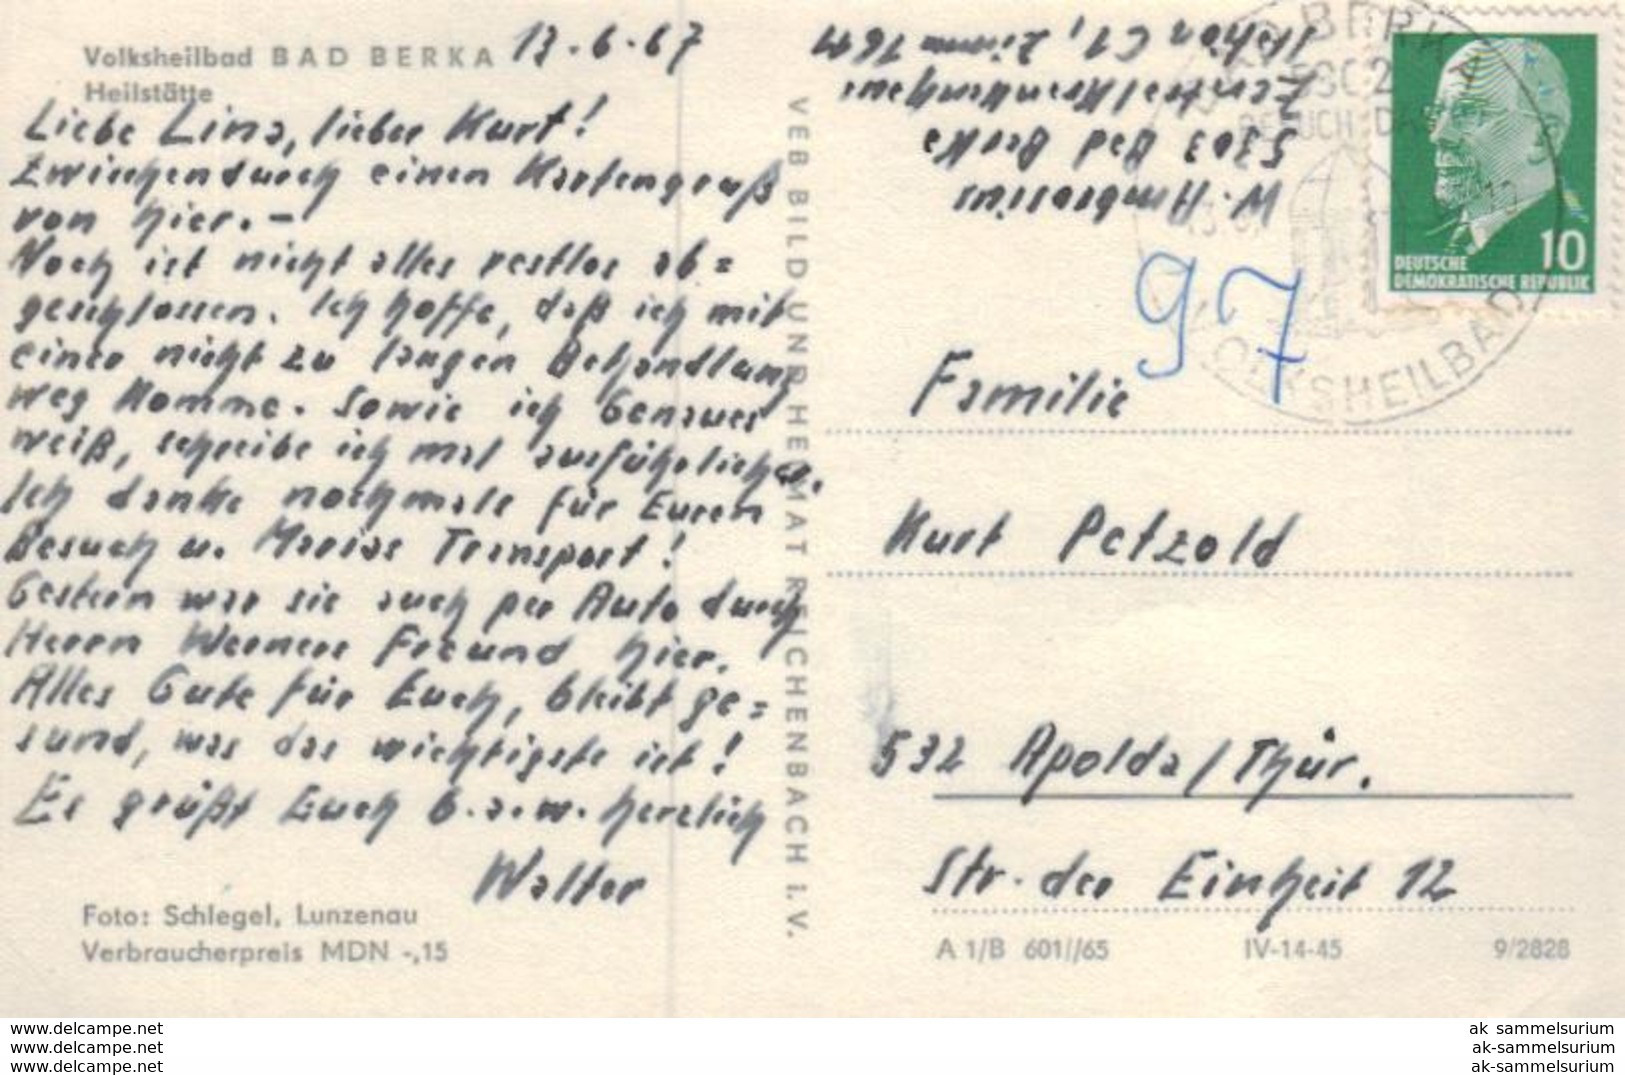 Volksheilbad BAD BERKA
Heilstätte
13.6.67
Liebe Lina, lieber Kurt!
Zwischendurch einen Kartengruß
von hier. –
Noch ist nicht alles restlos ab=
geschlossen. Ich hoffe, daß ich mit
einer nicht zu langen Behandlung
weg komme. Sowie ich Genaues
weiß, schreibe ich mal ausführlicher.
Ich danke nochmals für Euren
Besuch u. Marias Transport!
Gestern war sie auch per Auto durch
Herrn Werners Freund hier.
Alles Gute für Euch, bleibt ge=
sund, was das wichtigste ist!
Es grüßt Euch b.a.w. herzlich
Walter
Foto: Schlegel, Lunzenau
Verbraucherpreis MDN -,15
VEB BILD UND HEIMAT REICHENBACH I. V.
W. Ambrosius
5303 Bad Berka
Zentralklinikum
Station C1, Zimmer
BAD BERKA
VOLKSHEILBAD
DEUTSCHE
DEMOKRATISCHE REPUBLIK
10
97
Familie
Kurt Petzold
532 Apolda/Thür.
Str. der Einheit 12
A 1/B 601//65 IV-14-45 9/2828
www.delcampe.net
www.delcampe.net
www.delcampe.net
ak_sammelsurium
ak-sammelsurium
ak-sammelsurium